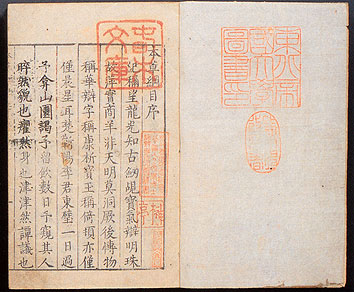 東京帝
國大學
圖書印
本草綱目序
紀稱望龍光知古劒覘寶氣辯明珠
故萍實商羊非天明莫洞厥後博物
稱華辯字稱康析寶玉稱倚頓亦僅
僅晨星耳楚蘄陽李君東璧一日過
予弇山園謁予留飲數日予窺其人
睟然貌也癯然身也津津然譚議也